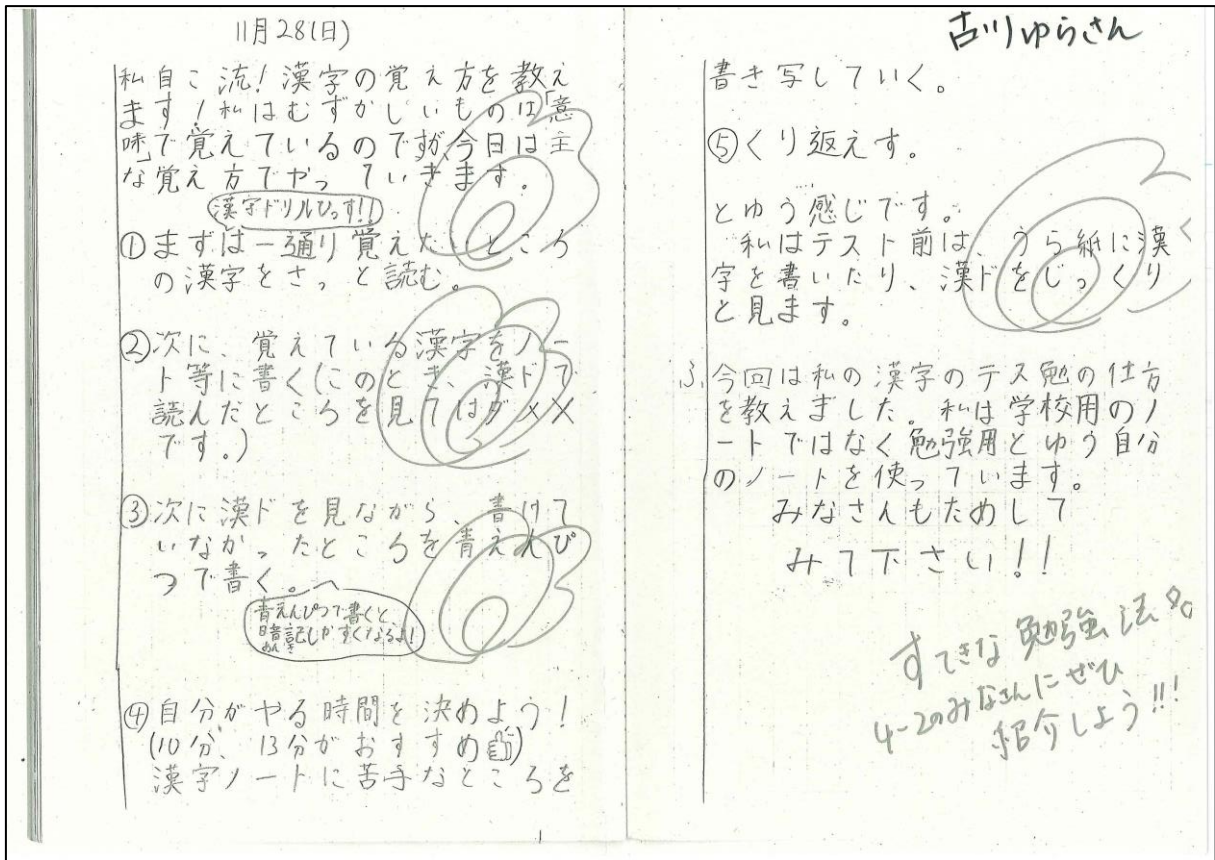 11月28(日)
私自こ流!漢字の覚え方を教え
ます!私はむずかしいものは「意
味」で覚えているのですが、今日は主
な覚え方でやっていきます。
漢字ドリルひっす!!
①まずは一通り覚えたいところ
の漢字をさっと読む。
②次に、覚えている漢字をノー
ト等に書く(このとき、漢ドで
読んだところを見てはダメ×
です。)
③次に漢ドを見ながら、書けて
いなかったところを青えんぴ
つで書く。
青えんぴつで書くと
暗記しやすくなるよ!
あん き
④自分がやる時間を決めよう!
(10分、13分がおすすめ)
漢字ノートに苦手なところを
古川ゆらさん
書き写していく。
⑤くり返えす。
とゆう感じです。
私はテスト前は、うら紙に漢
字を書いたり、漢ドをじっくり
と見ます。
ふ、今回は私の漢字のテス勉の仕方
を教えました。私は学校用のノ
ートではなく勉強用とゆう自分
のノートを使っています。
みなさんもためして
みて下さい!!
すてきな勉強法
4-2のみなさんにぜひ
紹介しよう!!!